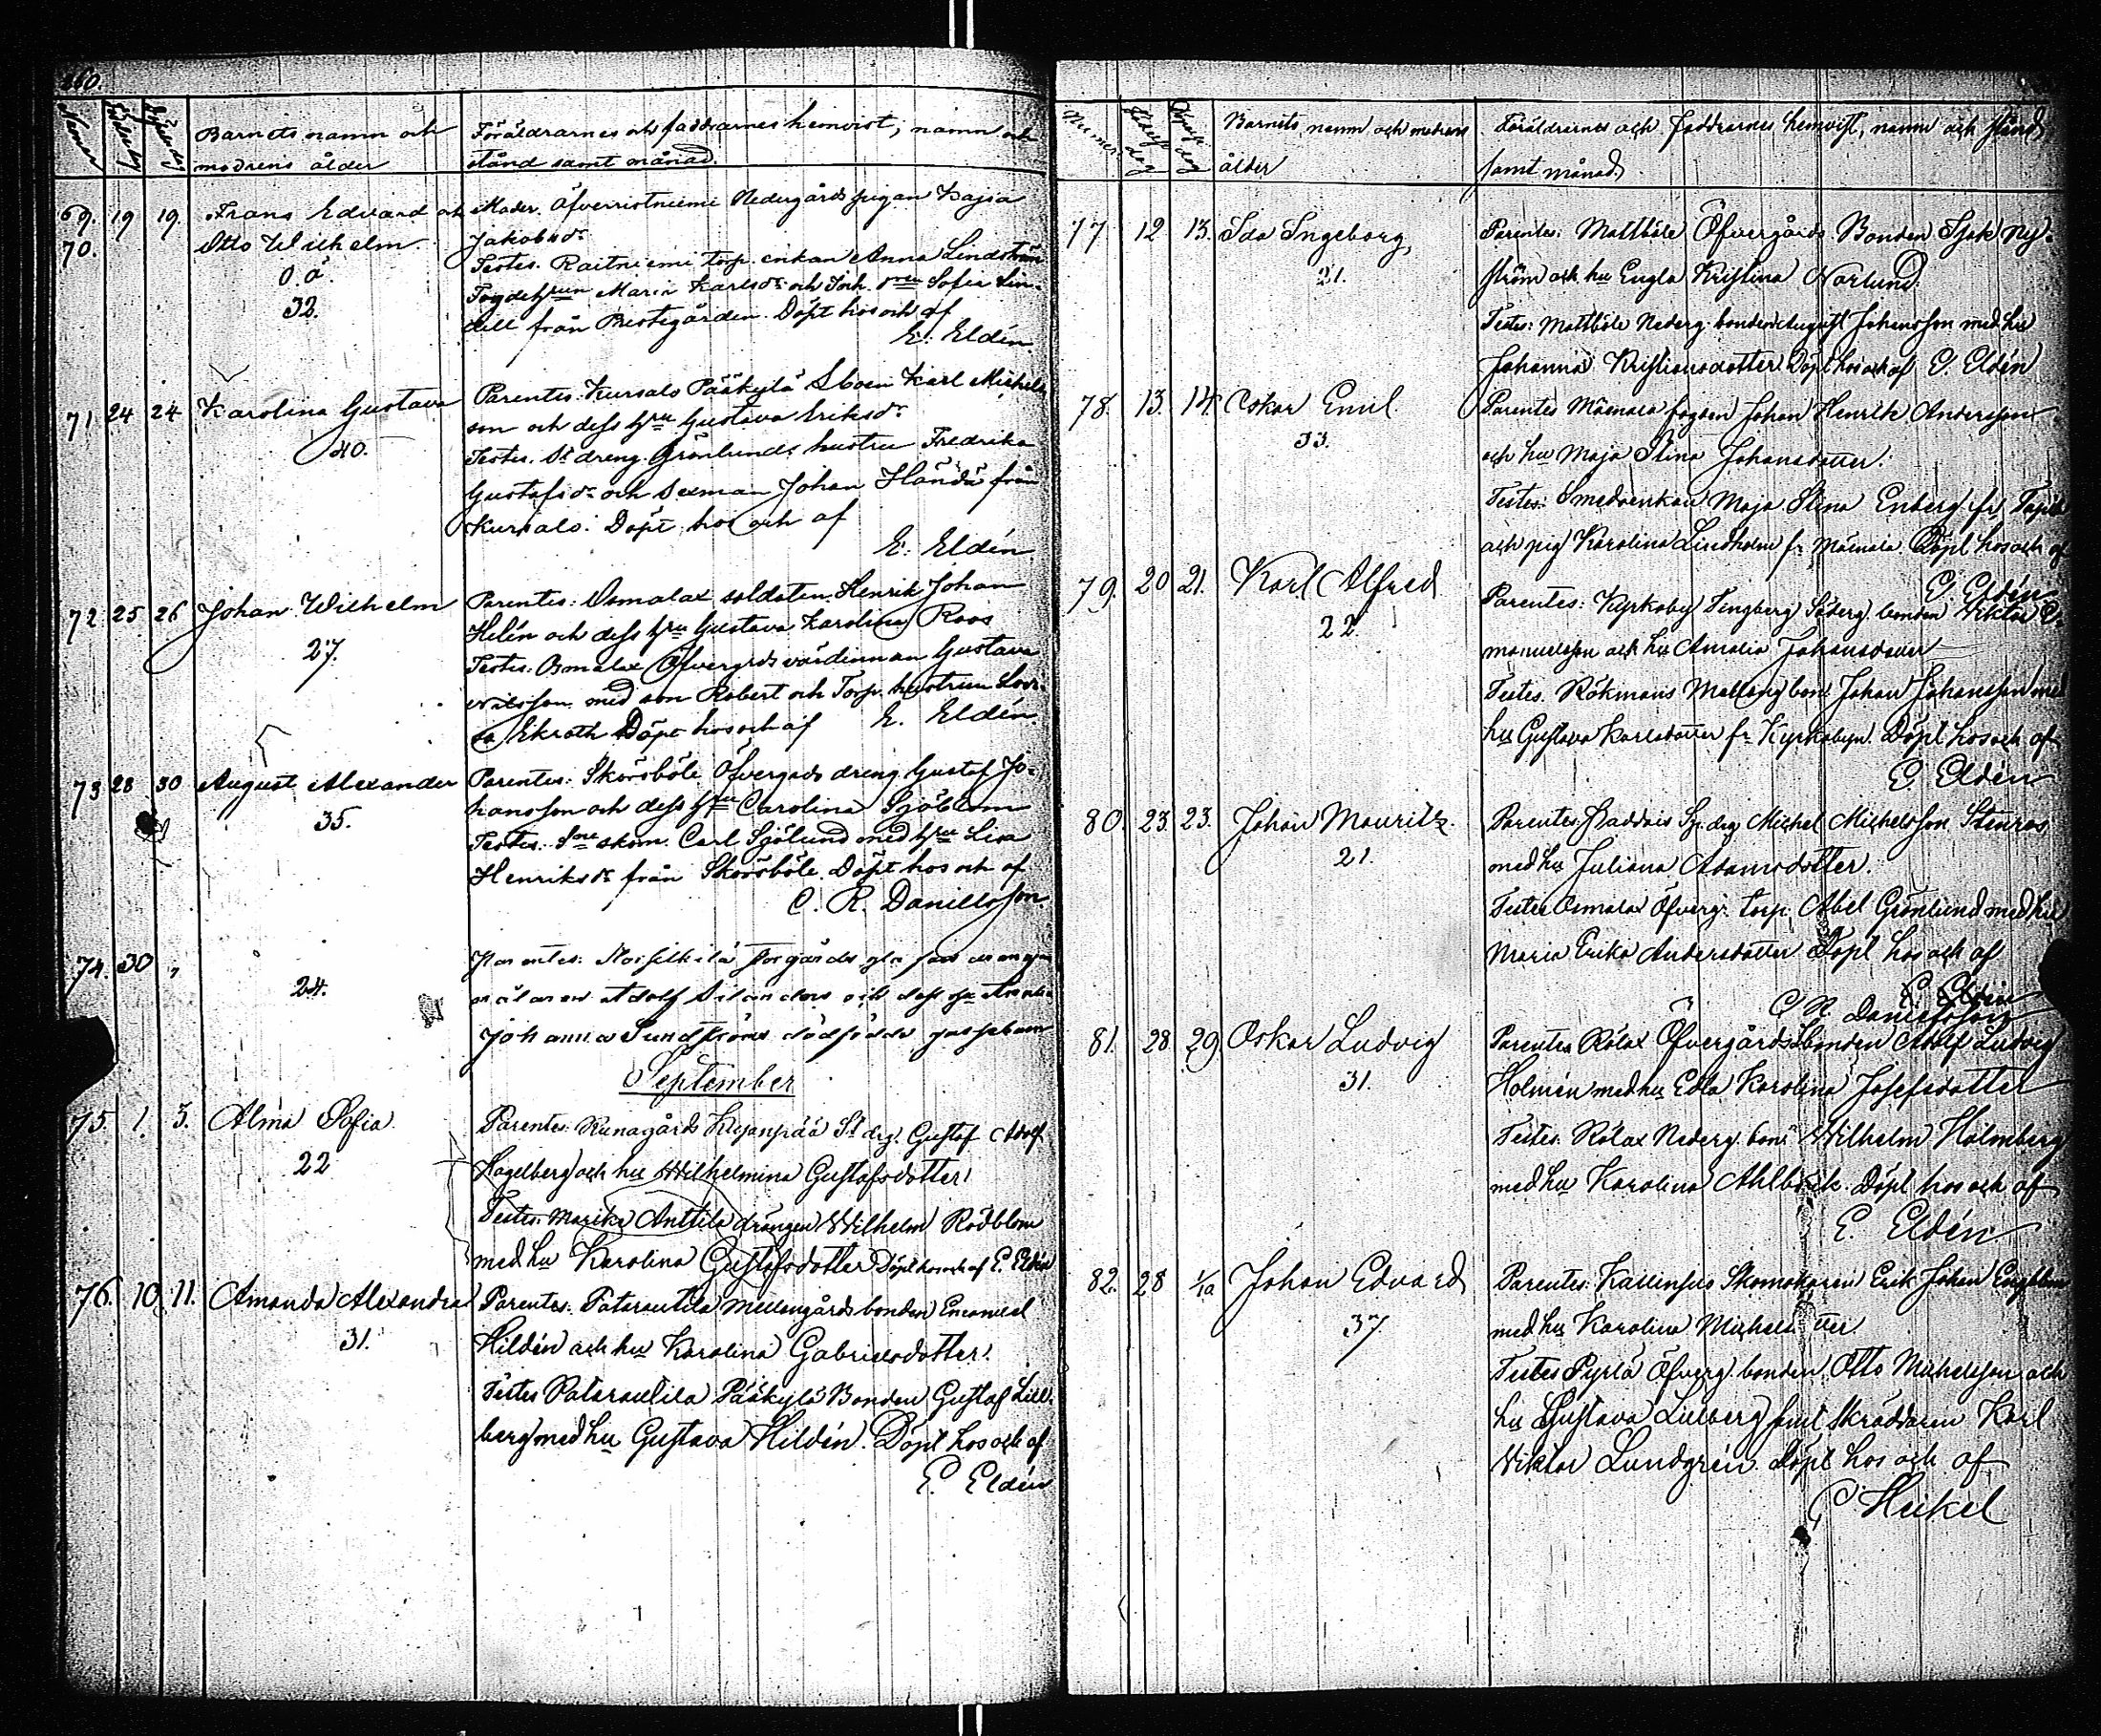 Barnets namn och
modrens ålder
Föräldrarnes och faddrarnes hemvist, namn och
stånd samt månad.
69. 19 19. Frans Edvard och
70. Otto Wilhelm
O. ä.
32.
Moder. Öfverristniemi Nedergårds pigan Kajsa
Jakobsdr
Testes. Raitniemi torp. enkan Anna Lindström
Maria Karlsdr och Sofia Lin-
dell från Prestegården. Döpt hos och af
E. Eldén.
71 24 24 Karolina Gustava
40.
Parentes. Kursalo Pääkylä Karl Michels
son och dess hru Gustava Eriksdr
Testes. St dreng. Grönlunds hustru Fredrika
Gustafsdr och sexman Johan Händä från
Kursalo. Döpt hos och af
E. Eldén
72 25 26 Johan Wilhelm
27.
Parentes: Osmalax soldaten Henrik Johan
Helén och dess hru Gustava Karolina Roos
Testes. Osmalax Öfvergrds värdinnan Gustava
Nilsson med son Robert och Torp. hustrun Lovi-
sa Ekroth Döpt hos och af E. Eldén.
73 28 30 August Alexander
35.
Parentes: Skorsböle Öfvergads dreng Gustaf Jo-
hansson och dess hru Carolina Sjöblom
Testes. skom. Carl Sjölund med hru Lisa
Henriksdr från Skorsböle. Döpt hos och af
C. R. Daniellsson.
74. 30 „
24.
Parentes:
målaren Adolf och dess hu
Johanna Sundström dödfödde gossebarn
September
75. 1. 5. Alma Sofia.
22
Parentes: Runagårds St drg. Gustaf Adolf
Hagelberg och hu Wilhelmina Gustafsdotter.
Testes. Anttila drängen Wilhelm Rödblom
med hu Karolina Gustafsdotter Döpt hos och af E. Eldén
76. 10. 11. Amanda Alexandra
31.
Parentes. Patarautila Mellangårds bonden Emanuel
Hildén och hu Karolina Gabrielsdotter.
Testes Patarautila Pääkylä Bonden Gustaf Lill-
berg med hu Gustava Hildén. Döpt hos och af
E. Eldén
Barnets namn och modrens
ålder
Föräldrarnes och Faddrarnes hemvist, namn och stånd
samt månad.
77 12 13. Ida Ingeborg,
21.
Parentes: Mattböle Öfvergårds Bonden Isak Ny-
ström och hu Engla Kristina Norlund.
Testes: Mattböle Nederg. bonden August Johansson med hu
Johanna Kristiansdotter Döpt hos och af E. Eldén
78. 13. 14. Oskar Emil
33.
Parentes Mäenala fogden Johan Henrik Andersson
och hu Maja Stina Johansdotter.
Testes: Smedsenkan Maja Stina Enberg fr.
och pig. Karolina Lindholm fr. Mäenala. Döpt hos och af
E. Eldén
79. 20 21. Karl Alfred
22.
Parentes: Kyrkoby Tengberg Söderg. bonden Viktor E-
manuelsson och hu Amalia Johansdotter
Testes. Rökmans Mellang. bond Johan Johansson med
hu Gustava Karlsdotter fr Kyrkobyn. Döpt hos och af
E. Eldén
80. 23. 23. Johan Mauritz.
21.
Parentes. Michel Michelsson Stenros
med hu Juliana Adamsdotter.
Testes Osmalax Öfverg. torp. Abel Grönlund med hu
Maria Erika Andersdotter Döpt hos och af
E. Eldén
C R Danielsson
81. 28 29. Oskar Ludvig
31.
Parentes Rölax Öfvergårds Lbonden Adolf Ludvig
Holmén med hu Edla Karolina Josefsdotter
Testes. Rölax Nederg. bond Wilhelm Holmberg
med hu Karolina Ahlbäck. Döpt hos och af
E. Eldén
82. 28 1/10 Johan Edvard
37.
Parentes. Skomakaren Erik Johan Engblom
med hu Karolina
Testes Pyrlä Öfverg. bonden Otto Michelsson och
hu Gustava Lilberg samt skräddaren Karl
Viktor Lundgrén Döpt hos och af
Heikel